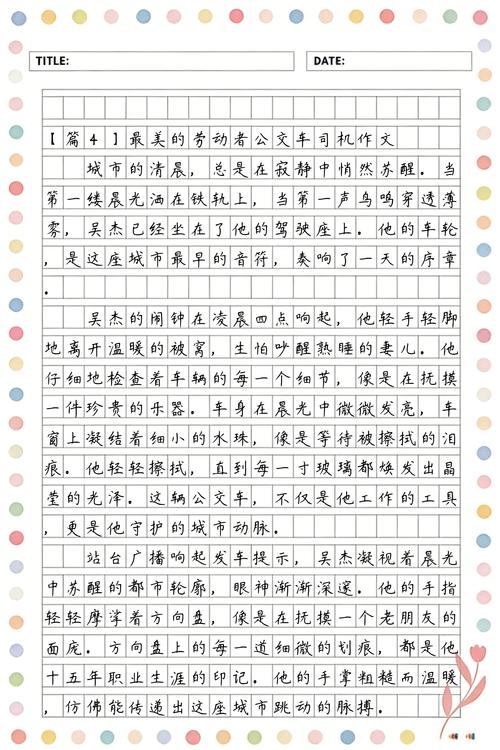 TITLE:
DATE:
【篇4】最美的劳动者公交车司机作文
城市的清晨，总是在寂静中悄然苏醒。当
第一缕晨光洒在铁轨上，当第一声鸟鸣穿透薄
雾，吴杰已经坐在了他的驾驶座上。他的车轮
，是这座城市最早的音符，奏响了一天的序章
。
吴杰的闹钟在凌晨四点响起，他轻手轻脚
地离开温暖的被窝，生怕吵醒熟睡的妻儿。他
仔细地检查着车辆的每一个细节，像是在抚摸
一件珍贵的乐器。车身在晨光中微微发亮，车
窗上凝结着细小的水珠，像是等待被擦拭的泪
痕。他轻轻擦拭，直到每一寸玻璃都焕发出晶
莹的光泽。这辆公交车，不仅是他工作的工具
，更是他守护的城市动脉。
站台广播响起发车提示，吴杰凝视着晨光
中苏醒的都市轮廓，眼神渐渐深邃。他的手指
轻轻摩挲着方向盘，像是在抚摸一个老朋友的
面庞。方向盘上的每一道细微的划痕，都是他
十五年职业生涯的印记。他的手掌粗糙而温暖
，仿佛能传递出这座城市跳动的脉搏。